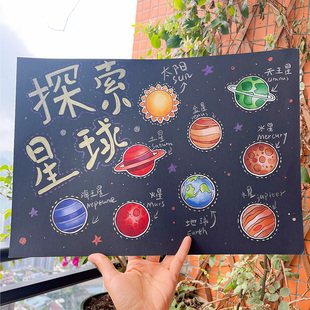 探索
星球
太阳
sun
天王星
uranus
金星
水星
mercury
土星
saturn
海王星
neptune
火星
Mars
地球
Earth
木星
Jupiter